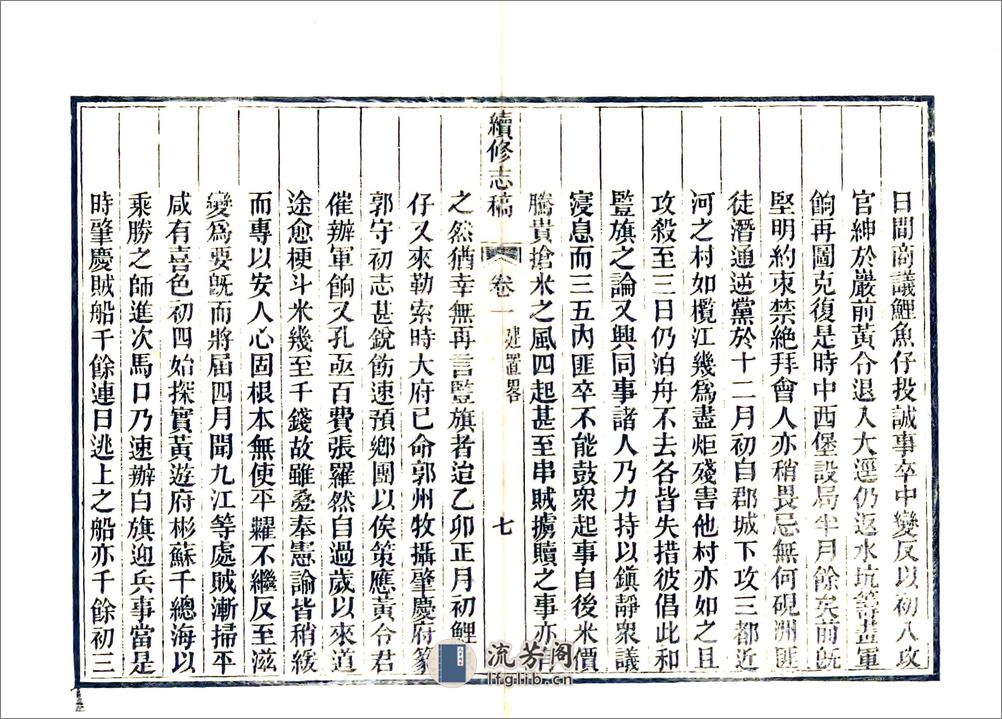 日間商議鯉魚仔投誠事卒中變反以初八攻
官紳於嚴前黃令退入大逕仍返水坑籌畫軍
餉再圖克復是時中西堡設局半月餘矣前旣
堅明約束禁絕拜會人亦稍畏忌無何硯洲匪
徒潛通逆黨於十二月初自郡城下攻三都近
河之村如欖江幾爲盡炬殘害他村亦如之且
攻殺至三日仍泊舟不去各皆失措彼倡此和
豎旗之論又興同事諸人乃力持以鎭靜衆議
寖息而三五內匪卒不能鼓衆起事自後米價
騰貴搶米之風四起甚至串賊擄贖之事亦
續修志稿
卷一
建置畧
七
之然猶幸無再言豎旗者迨乙卯正月初鯉
仔又來勒索時大府已命郭州牧攝肇慶府篆
郭守初志甚銳飭速預鄉團以俟策應黃令君
催辦軍餉又孔亟百費張羅然自過歲以來道
途愈梗斗米幾至千錢故雖疊奉憲諭皆稍緩
而專以安人心固根本無使平糶不繼反至滋
變爲要旣而將屆四月聞九江等處賊漸掃平
咸有喜色初四始探實黃遊府彬蘇千總海以
乘勝之師進次馬口乃速辦白旗迎兵事當是
時肇慶賊船千餘連日逃上之船亦千餘初三
流芳閣
lfglib.cn